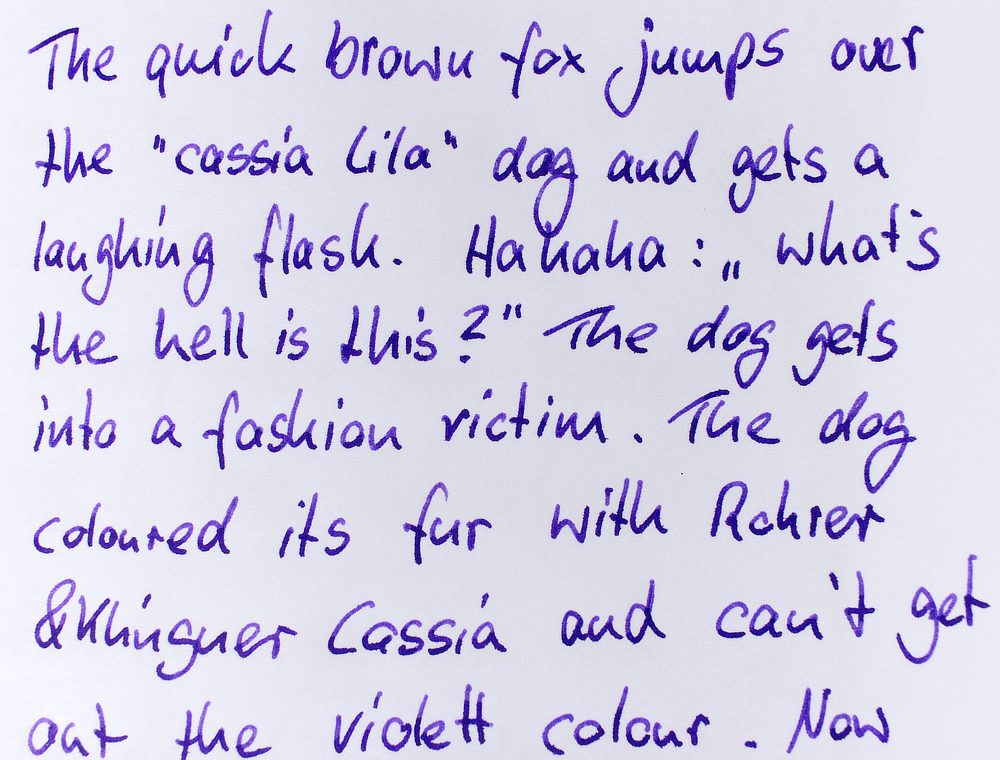 The quick brown fox jumps over
the "cassia lila" dog and gets a
laughing flash. Hahaha: „what's
the hell is this?" The dog gets
into a fashion victim. The dog
coloured its fur with Rohrer
&Klingner Cassia and can't get
out the violett colour. Now